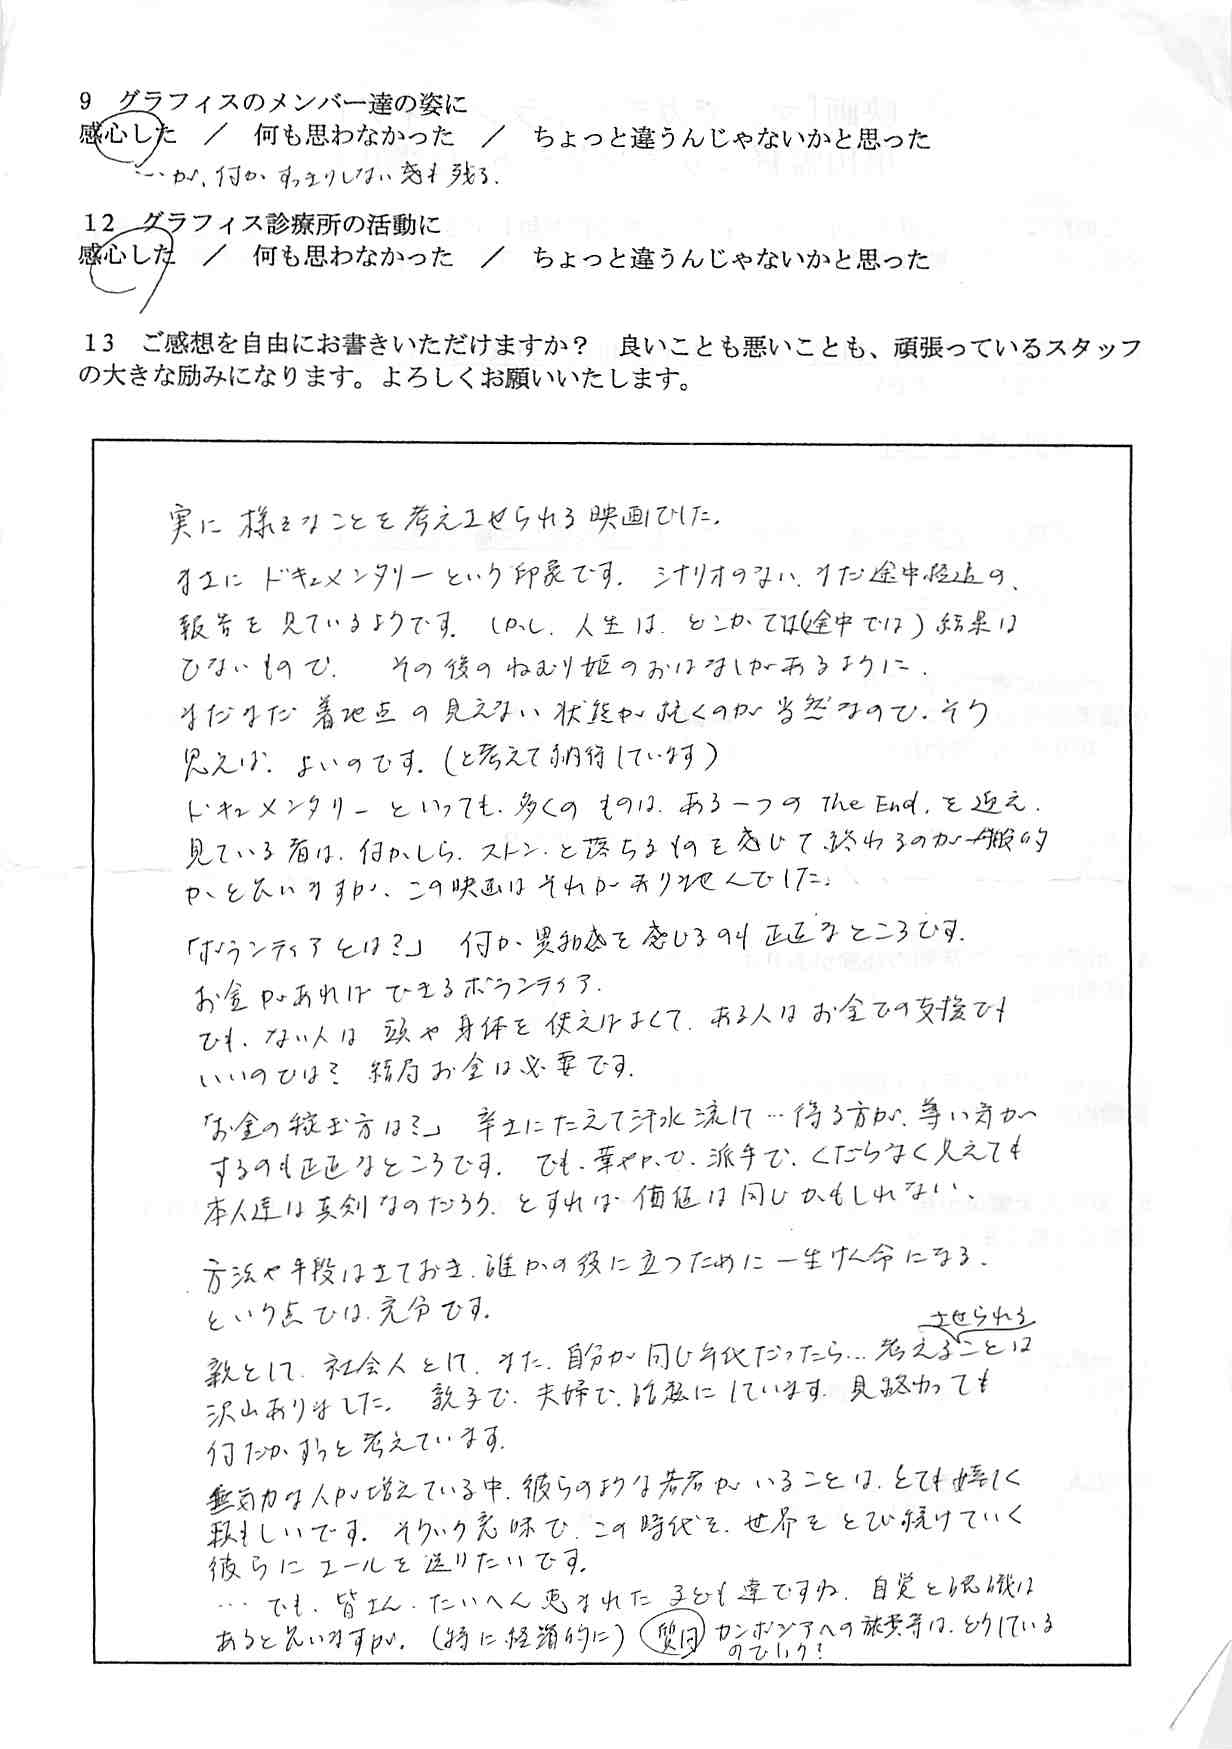 9　グラフィスのメンバー達の姿に
感心した　／　何も思わなかった　／　ちょっと違うんじゃないかと思った
…が、何か すっきりしない感も残る.
12　グラフィス診療所の活動に
感心した　／　何も思わなかった　／　ちょっと違うんじゃないかと思った
13　ご感想を自由にお書きいただけますか？　良いことも悪いことも、頑張っているスタッフ
の大きな励みになります。よろしくお願いいたします。
実に 様々なことを考えさせられる映画でした。
まさに ドキュメンタリーという印象です. シナリオのない、まだ途中経過の、
報告を見ているようです. しかし、人生は、どこかでは(途中では)結果は
でないもので、 その後のねむり姫のおはなしがあるように、
まだまだ 着地点の見えない状態が続くのが当然なので、そう
思えば、よいのです. (と考えて納得しています)
ドキュメンタリーといっても、多くのものは、ある一つの The End. を迎え、
見ている者は、何かしら、ストン、と落ちるものを感じて、終わるのが一般的
か、と思いますが、この映画はそれがありませんでした。
「ボランティアとは?」 何か、異和感を感じるのも正直なところです.
お金があれば できるボランティア.
でも、ない人は 頭や身体を使えばよくて、ある人はお金での支援でも
いいのでは? 結局お金は必要です.
「お金の稼ぎ方は?」 辛さにたえて汗水流して…得る方が、尊い気が
するのも正直なところです. でも、華やかで、派手で、くだらなく見えても
本人達は真剣なのだろう、とすれば 価値は同じかもしれない、
方法や手段はさておき、誰かの役に立つために一生けん命になる、
という点では、充分です.
させられる
親として、社会人として、また、自分が同じ年代だったら… 考えることは
沢山ありました。 親子で、夫婦で、話題にしています. 見終わっても
何だかずっと考えています.
無気力な人が増えている中、彼らのような若者がいることは、とても嬉しく
頼もしいです. そういう意味で、この時代を、世界をとび続けていく
彼らにエールを送りたいです.
… でも、皆さん、たいへん恵まれた子ども達ですね. 自覚と認識は
あると思いますが. (特に経済的に) 質問 カンボジアへの旅費等は、どうしている
のでしょう?